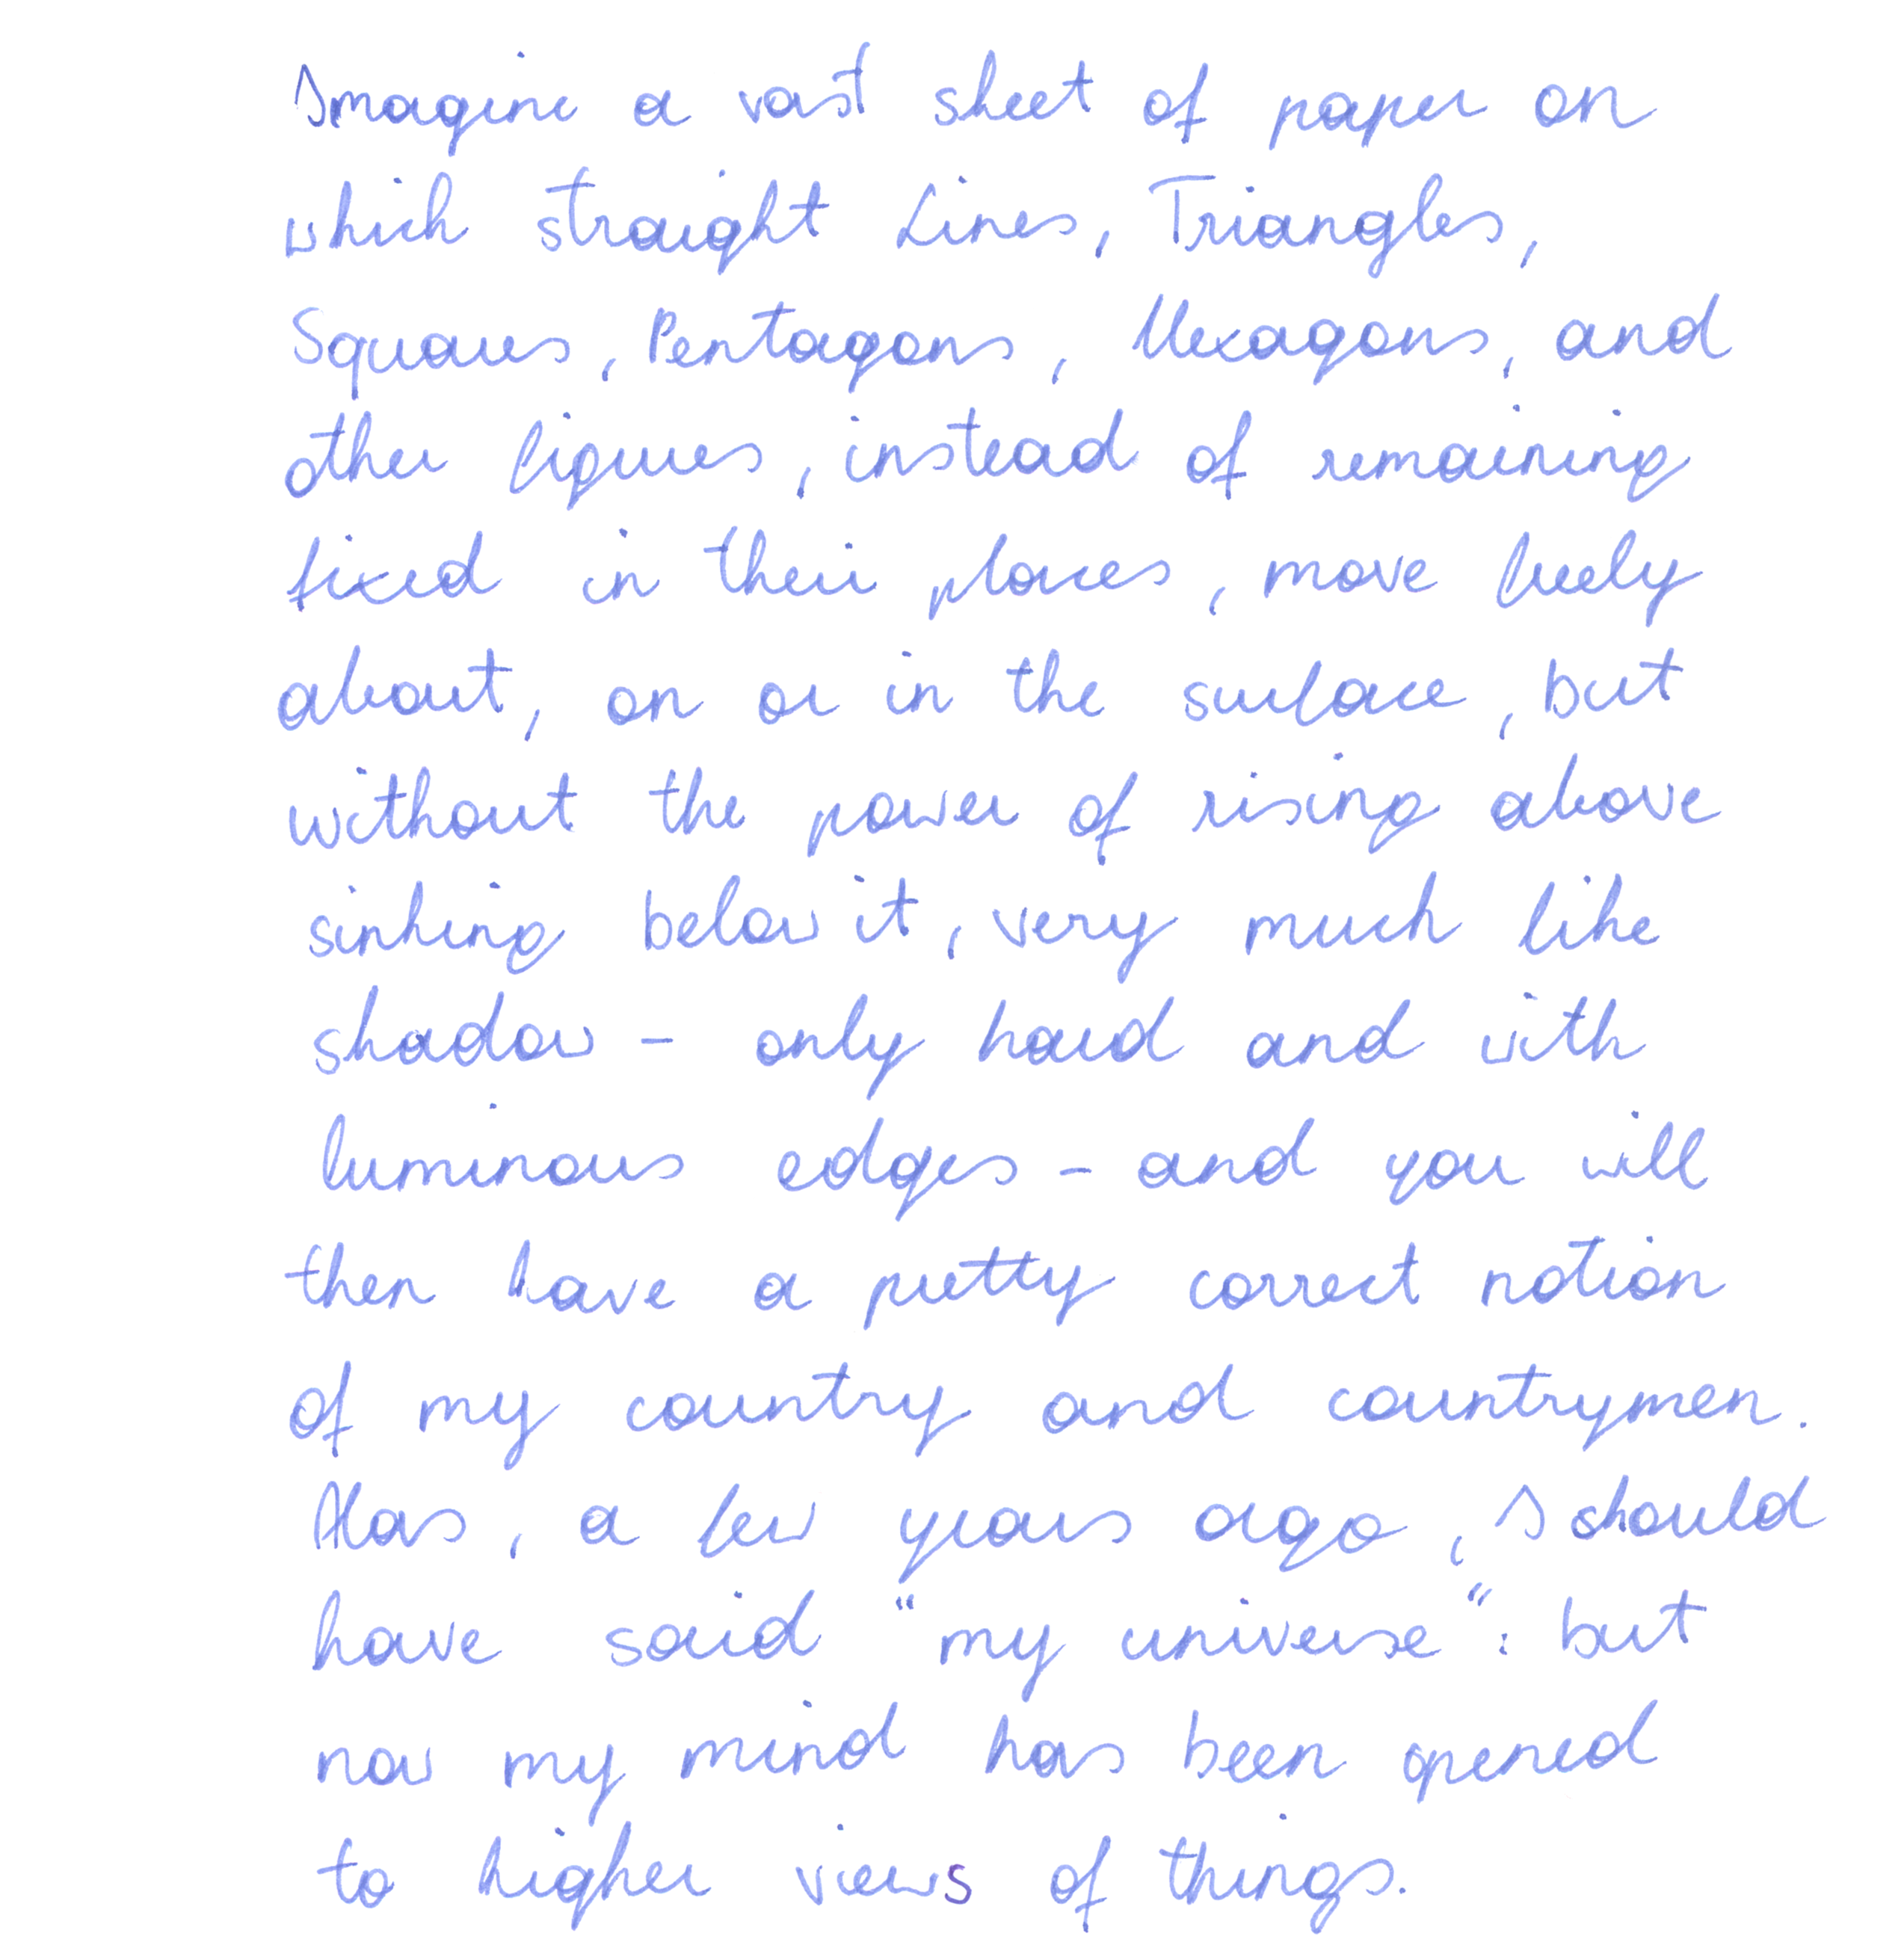 Imagine a vast sheet of paper on
which straight Lines, Triangles,
Squares, Pentagons, Hexagons, and
other figures, instead of remaining
fixed in their places, move freely
about, on or in the surface, but
without the power of rising above
sinking below it, very much like
shadow - only hard and with
luminous edges - and you will
then have a pretty correct notion
of my country and countrymen.
Alas, a few years ago, I should
have said "my universe": but
now my mind has been opened
to higher views of things.